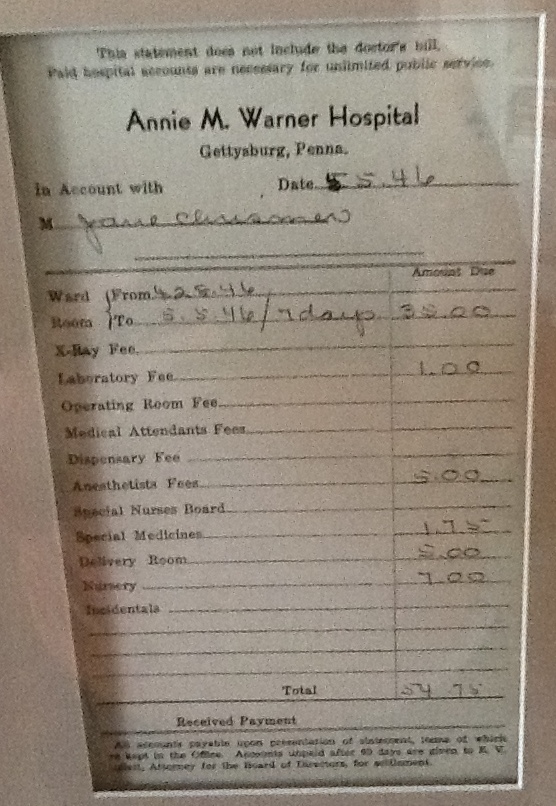 This statement does not include the doctor's bill.
Paid hospital accounts are necessary for unlimited public service.
Annie M. Warner Hospital
Gettysburg, Penna.
In Account with Date 5.5.46
M Jane
Amount Due
Ward From 4.28.46
Room To 5.5.46/7 days 35.00
X-Ray Fee
Laboratory Fee 1.00
Operating Room Fee
Medical Attendants Fees
Dispensary Fee
Anesthetists Fees 5.00
Special Nurses Board
Special Medicines 1.75
Delivery Room 5.00
Nursery 7.00
Incidentals
Total 54.75
Received Payment
All accounts payable upon presentation of statement, items of which
kept in the Office. Accounts unpaid after 60 days are given to E. V.
Attorney for the Board of Directors, for settlement.